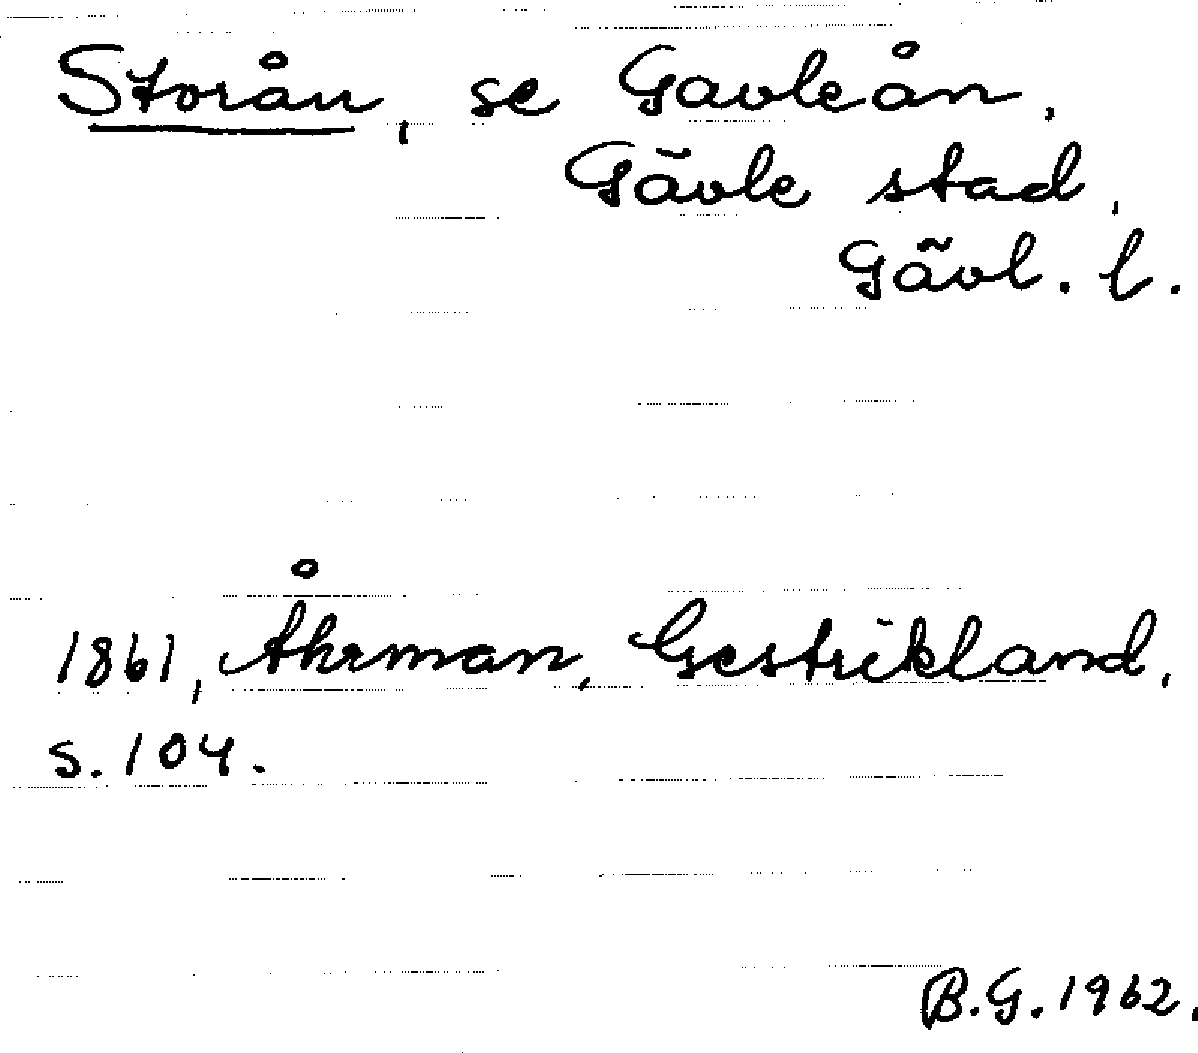 Storån, se Gavleån,
Gävle stad,
Gävl. l.
1861, Åhrman, Gestrikland,
s. 104.
B.G. 1962.